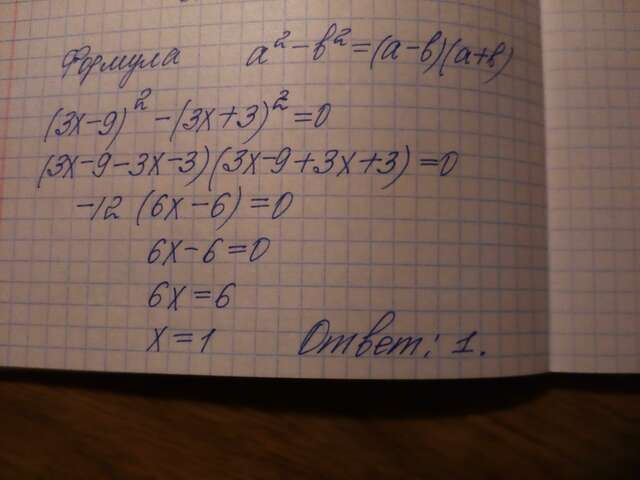 Формула a² - b² = (a-b)(a+b)
(3x-9)² - (3x+3)² = 0
(3x-9-3x-3)(3x-9+3x+3) = 0
-12 (6x-6) = 0
6x-6=0
6x=6
x=1 Ответ: 1.